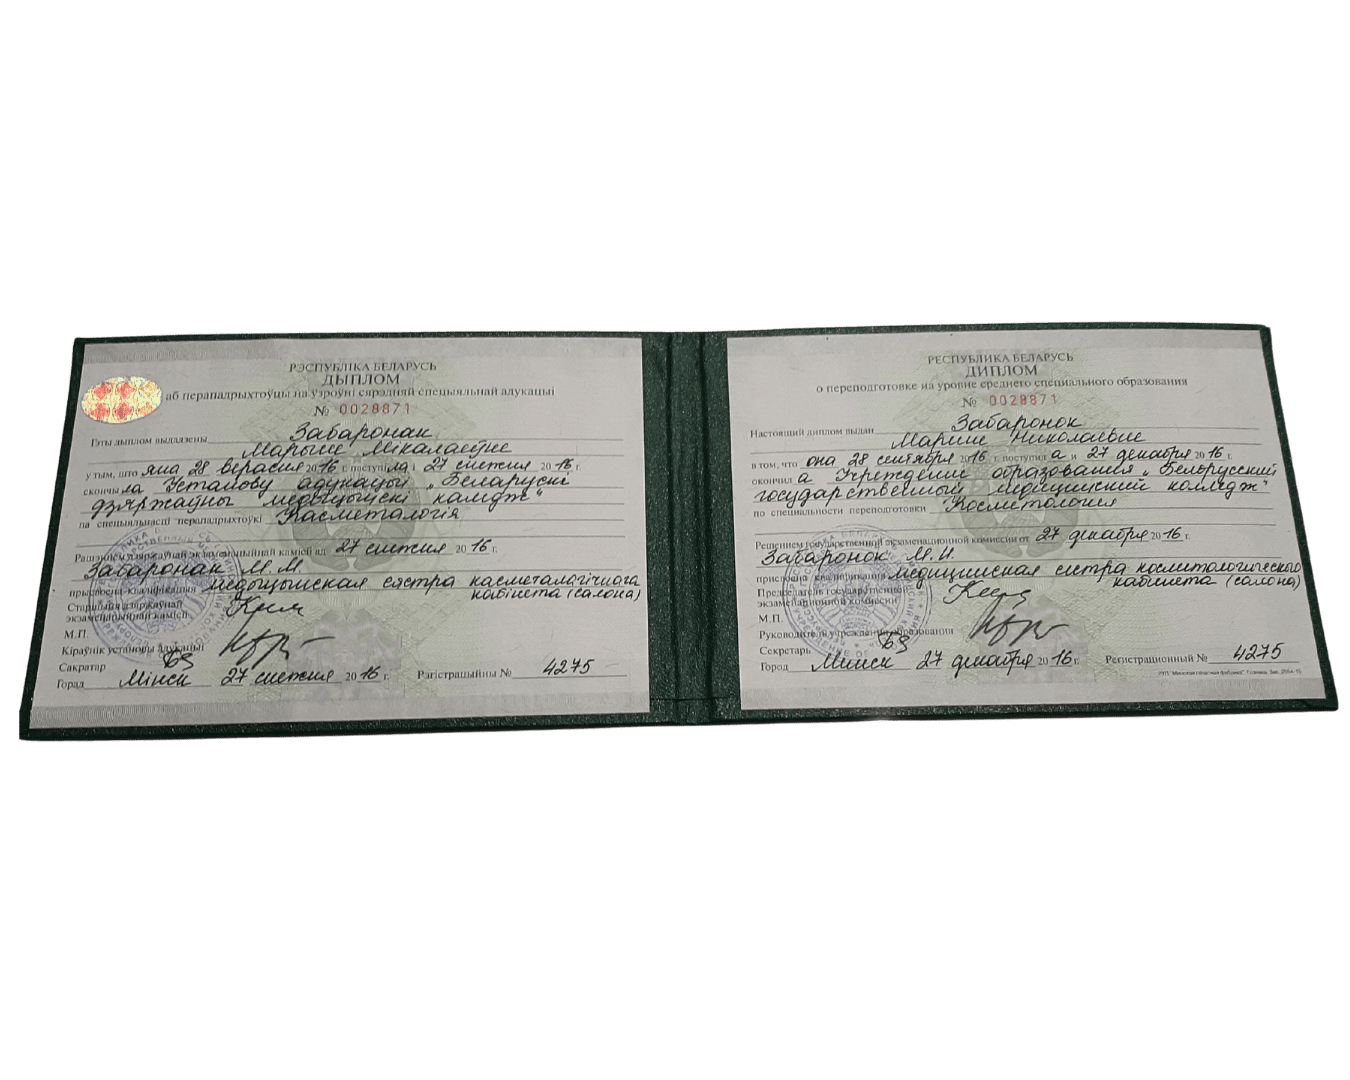 РЭСПУБЛІКА БЕЛАРУСЬ
ДЫПЛОМ
аб перападрыхтоўцы на ўзроўні сярэдняй спецыяльнай адукацыі
№ 0028871
Гэты дыплом выдадзены Забаронак
Марыне Мікалаеўне
у тым, што яна 28 верасня 2016 г. паступіла і 27 снежня 2016 г.
скончыла Установу адукацыі „Беларускі
дзяржаўны медыцынскі каледж“
па спецыяльнасці перападрыхтоўкі Касметалогія
Рашэннем дзяржаўнай экзаменацыйнай камісіі ад 27 снежня 2016 г.
Забаронак М.М.
прысвоена кваліфікацыя медыцынская сястра касметалагічнага
кабінета (салона)
Старшыня дзяржаўнай
экзаменацыйнай камісіі
М.П.
Кіраўнік установы адукацыі
Сакратар
Горад Мінск 27 снежня 2016 г. Рэгістрацыйны № 4275
РЕСПУБЛИКА БЕЛАРУСЬ
ДИПЛОМ
о переподготовке на уровне среднего специального образования
№ 0028871
Настоящий диплом выдан Забаронок
Марине Николаевне
в том, что она 28 сентября 2016 г. поступила и 27 декабря 2016 г.
окончила Учреждение образования „Белорусский
государственный медицинский колледж“
по специальности переподготовки Косметология
Решением государственной экзаменационной комиссии от 27 декабря 2016 г.
Забаронок М.Н.
присвоена квалификация медицинская сестра косметологического
кабинета (салона)
Председатель государственной
экзаменационной комиссии
М.П.
Руководитель учреждения образования
Секретарь
Город Минск 27 декабря 2016 г. Регистрационный № 4275